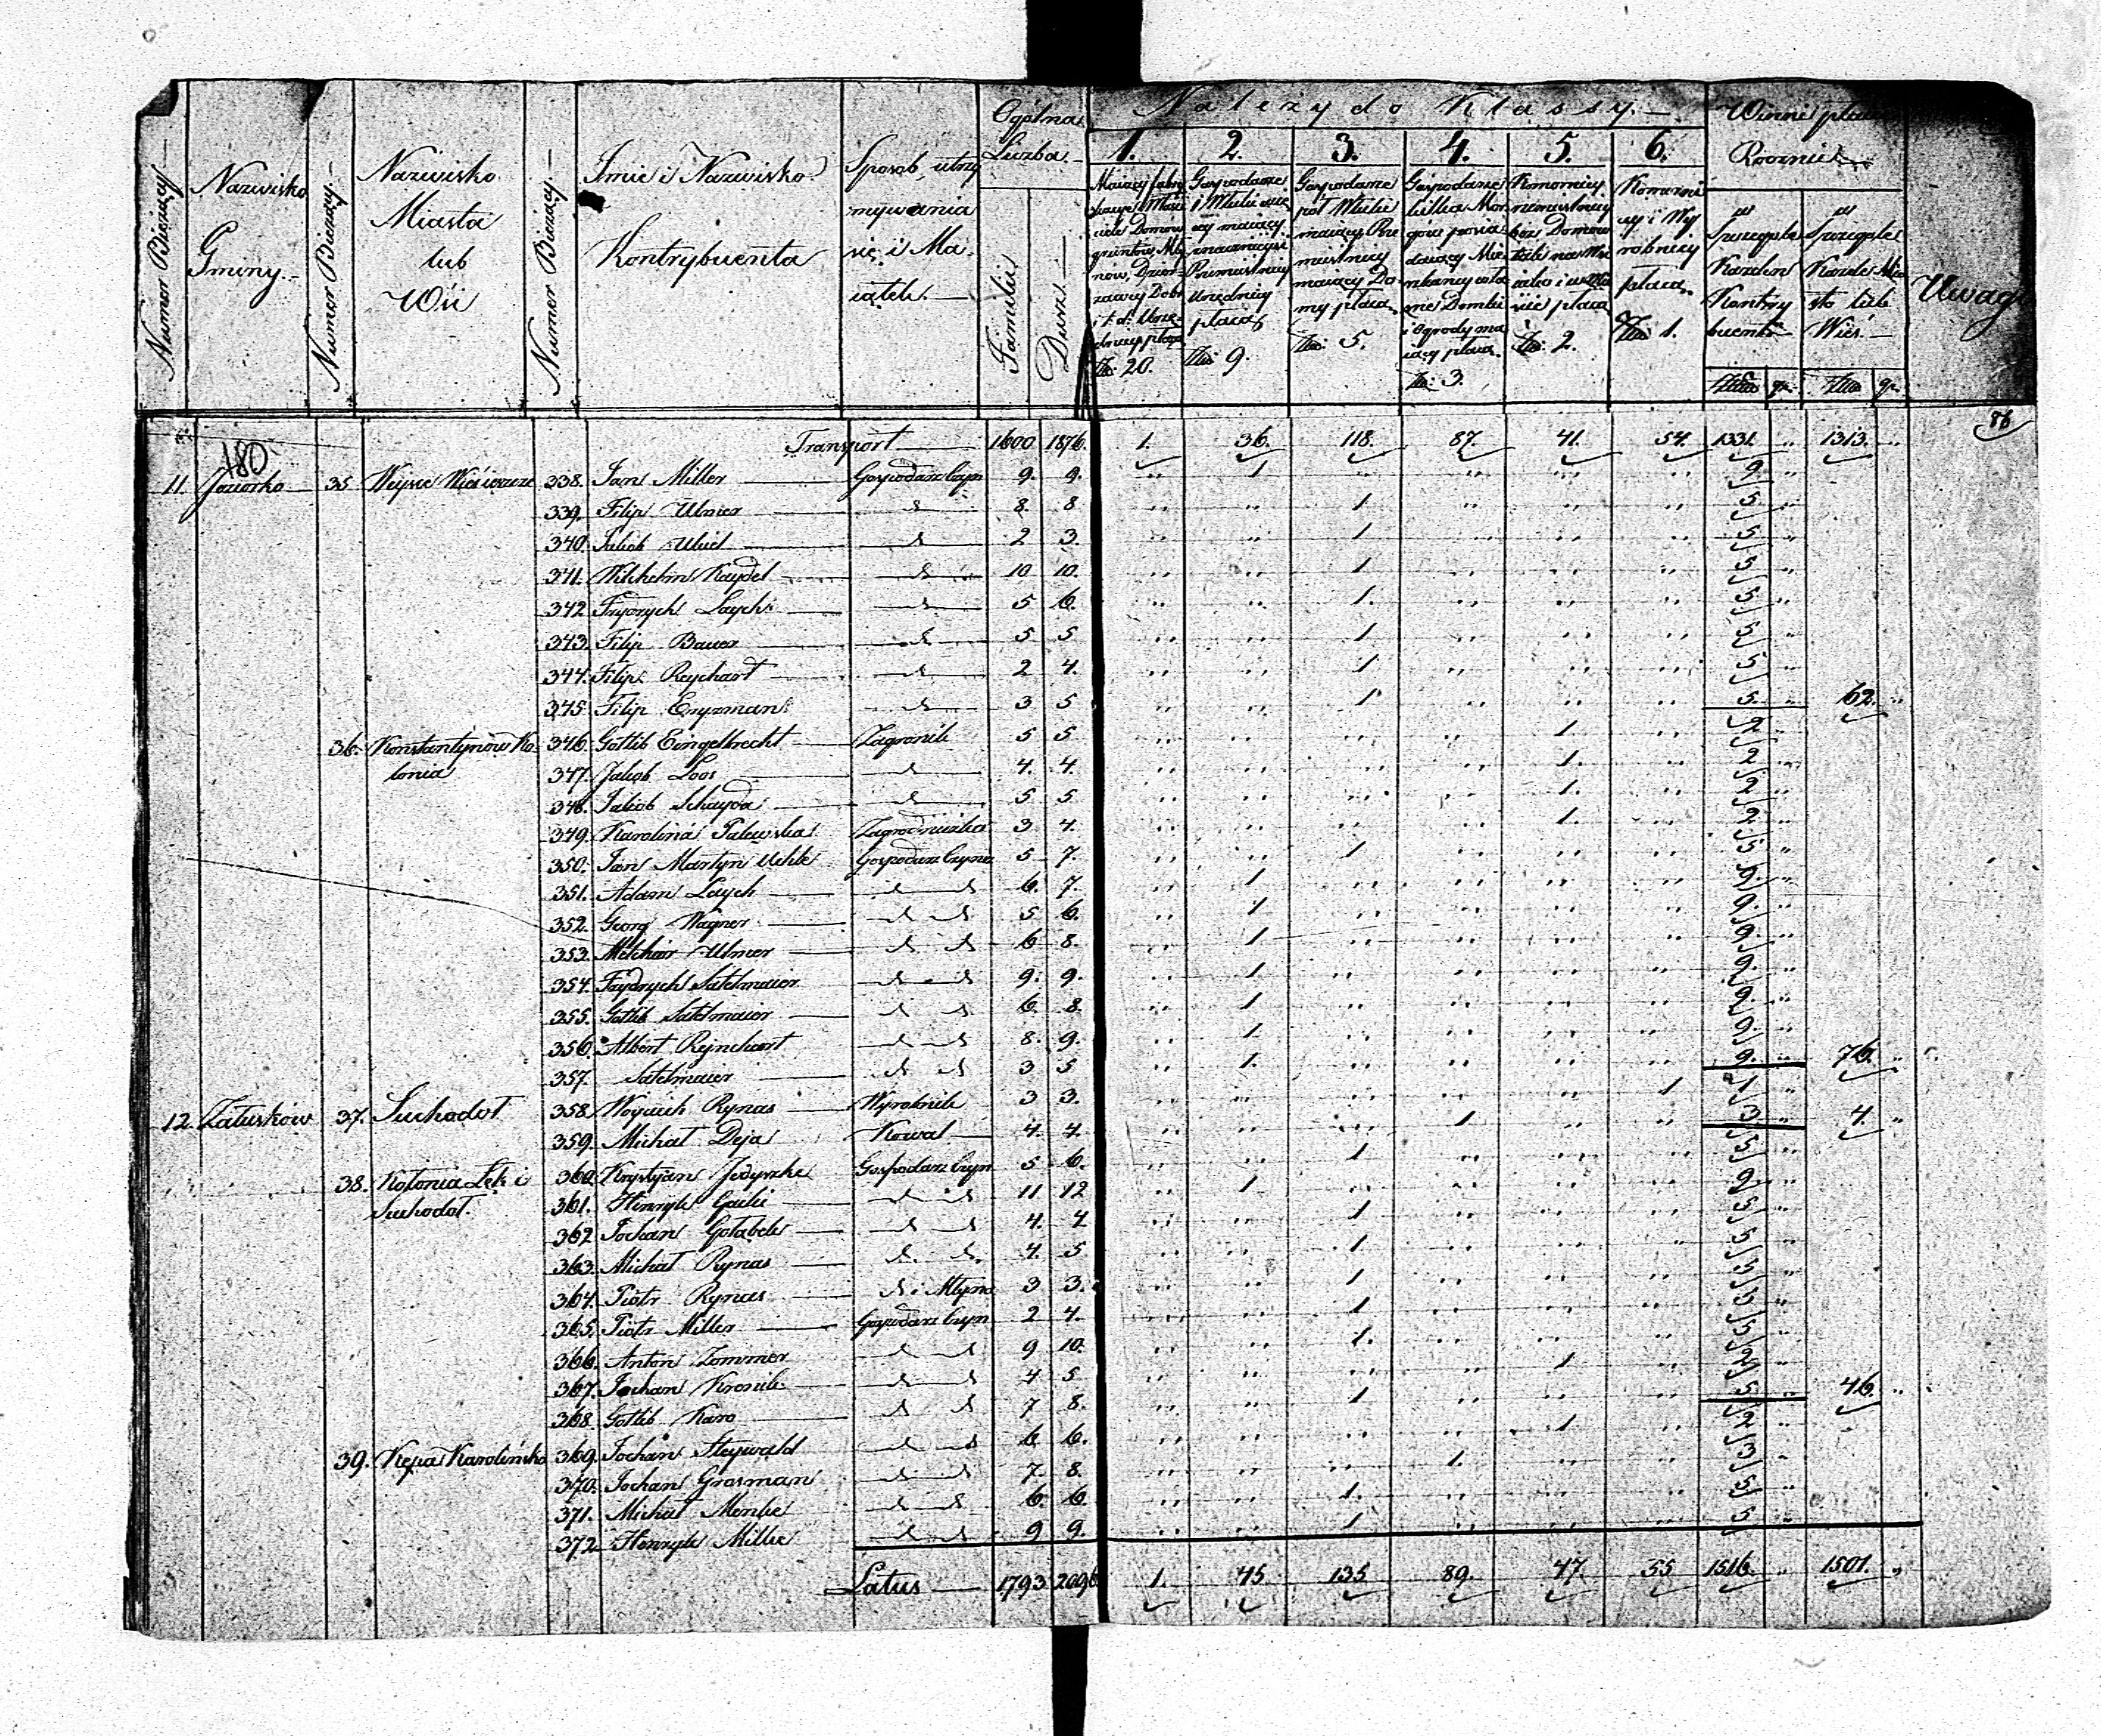 Należy do Klassy.
Numer Bieżący
Nazwisko
Gminy.
Numer Bieżący.
Nazwisko
Miasta
lub
Wsi
Numer Bieżący.
Imie i Nazwisko
Kontrybuenta
Sposób utrzy
mywania
się i Ma
iątek.
Ogólna
Liczba
Familii
Dusz
1.
płacą
Złt: 20.
2.
Gospodarze
Urzędnicy
płacą
Złt: 9.
3.
Gospodarze
pół Włuki
maiący Do
my płacą
Złt: 5.
4.
Gospodarze
i Ogrody ma
iący płacą
Złt: 3.
5.
Komornicy
płacą
Złt: 2.
6.
Komorni
cy i Wy
robnicy
płacą
Złt: 1.
Winni płacić
Rocznie
Kontry
buent
Wieś.
gr. gr.
Uwagi
86
180
Transport 1600 1876. 1. 36. 118. 87. 41. 54. 1331. " 1313. "
11. Jeziorko 35 338. Jan Miller Gospodarz Czyn 9. 9. " 1 " " " " 9 "
339. Filip Ulmer d 8. 8 " " 1 " " " 5 "
340. Jakób d 2 3. " " 1 " " " 5 "
341. Wilchelm Kaydel d 10 10. " " 1 " " " 5 "
342 Frydrych Laych d 5 6. " " 1. " " " 5 "
343. Filip Bauer d 5 5 " " 1 " " " 5 "
344. Filip Reychart d 2 4. " " 1 " " " 5 "
345 Filip Eryzman d 3 5 " " 1 " " " 5. " 62. "
36. Konstantynów Ko 346. Gotlib Eingelbrecht Zagrodnik 5 5 " " " " 1. " 2 "
lonia 347. Jakób Loos d 4. 4. " " " " 1. " 2 "
348. Jakób Schayda d 5 5 " " " " 1. " 2 "
349. Karolina Palewska Zagrodniczka 3 4. " " " " 1. " 2 "
350. Jan Martyn Gospodarz Czyn 5 7. " " 1 " " " 5 "
351. Adam Laych d d 6. 7. " 1 " " " " 9. "
352. Georg Wagner d d 5 6. " 1 " " " " 9. "
353. Melchior Ulmer d d 6 8. " 1 " " " " 9. "
354. Frydrych Satelmaier d d 9. 9. " 1 " " " " 9. "
355. Gotlib Satelmaier d d 6. 8. " 1 " " " " 9. "
356. Albert Rejnchart d d 8. 9. " 1. " " " " 9. "
357. Satelmaier d d 3 5 " 1. " " " " 9. " 76. "
12. Załusków 37. Suchodoł 358. Woyciech Rynas Wyrobnik 3 3. " " " " " 1 1 "
359. Michał Deja Kowal 4. 4. " " " 1 " " 3. " 4. "
38. Kolonia Łęk i 360. Krystyan Gospodarz Czyn 5 6. " " 1 " " " 5 "
Suchodoł. 361. Henryk d d 11 12 " 1 " " " " 9. "
362 Jochan Gołabek d d 4. 4 " " 1 " " " 5 "
363. Michał Rynas d d 4. 5 " " 1 " " " 5 "
364. Piotr Rynas d i Młyna 3 3. " " 1 " " " 5 "
365. Piotr Miller Gospodarz Czyn 2 4. " " 1 " " " 5 "
366. Anton Zommer d d 9 10. " " 1. " " " 5 "
367. Jochan Kronik d d 4 5 " " " " 1 " 2 "
368. Gotlib Karo d d 7 8. " " 1 " " " 5 " 46. "
39. Kępa Karolińska 369. Jochan Steywald d d 6 6. " " " " 1 " 2 "
370. Jochan Grosman d d 7. 8. " " " 1. " " 3 "
371. Michał Menke d d 6. 6. " " 1. " " " 5 "
372 Henryk Milke d d 9 9. " " 1 " " " 5 "
Latus 1793 2096 1. 45. 135 89. 47. 55 1516. " 1501. "